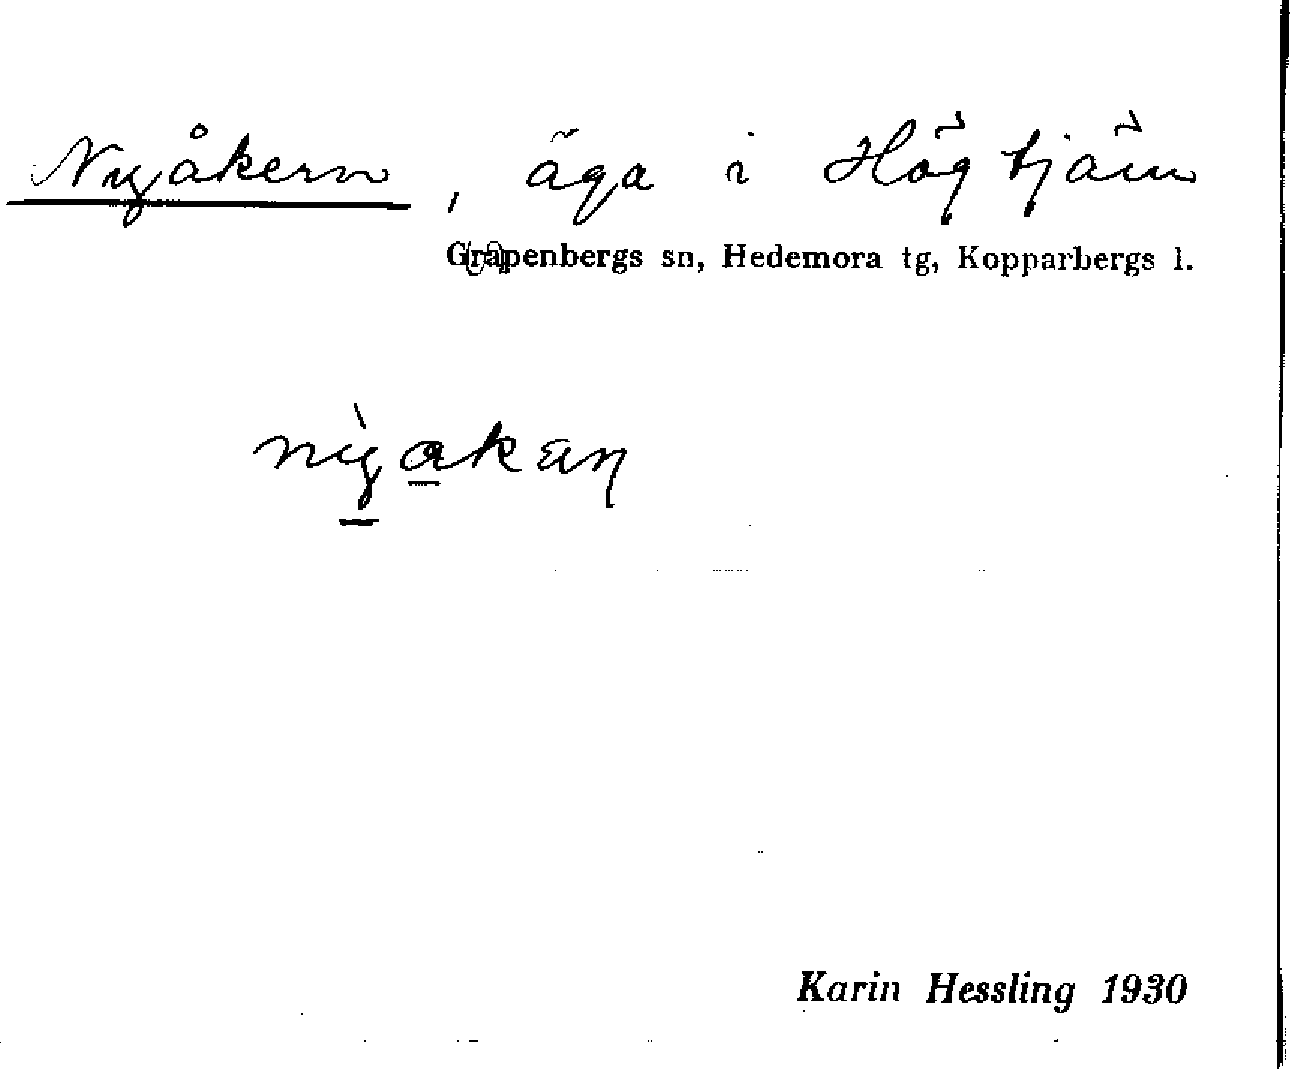 Nyåkern, äga i Högtjärn
Grapenbergs sn, Hedemora tg, Kopparbergs l.
Karin Hessling 1930